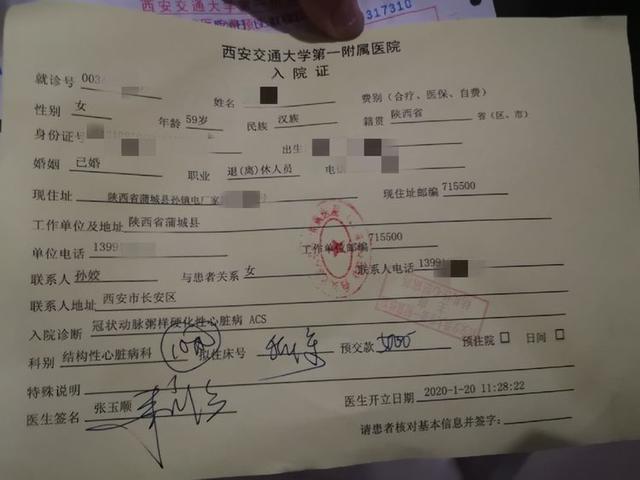 西安交通大学第一
317310
西安交通大学第一附属医院
入院证
就诊号 003 姓名 费别（合疗、医保、自费）
性别 女 年龄 59岁 民族 汉族 籍贯 陕西省 省（区、市）
身份证号 出生
婚姻 已婚 职业 退(离)休人员 电话
现住址 陕西省蒲城县孙镇电厂家 现住址邮编 715500
工作单位及地址 陕西省蒲城县
单位电话 1399 工作单位邮编 715500
联系人 孙姣 与患者关系 女 联系人电话 1399
联系人地址 西安市长安区
入院诊断 冠状动脉粥样硬化性心脏病 ACS
科别 结构性心脏病科 拟住床号 预交款 预住院 □ 日间 □
特殊说明
医生签名 张玉顺 医生开立日期 2020-1-20 11:28:22
请患者核对基本信息并签字: